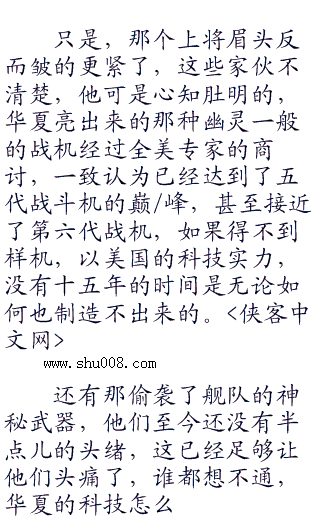 只是，那个上将眉头反
而皱的更紧了，这些家伙不
清楚，他可是心知肚明的，
华夏亮出来的那种幽灵一般
的战机经过全美专家的商
讨，一致认为已经达到了五
代战斗机的巅/峰，甚至接近
了第六代战机，如果得不到
样机，以美国的科技实力，
没有十五年的时间是无论如
何也制造不出来的。<侠客中
文网>
www.shu008.com
还有那偷袭了舰队的神
秘武器，他们至今还没有半
点儿的头绪，这已经足够让
他们头痛了，谁都想不通，
华夏的科技怎么